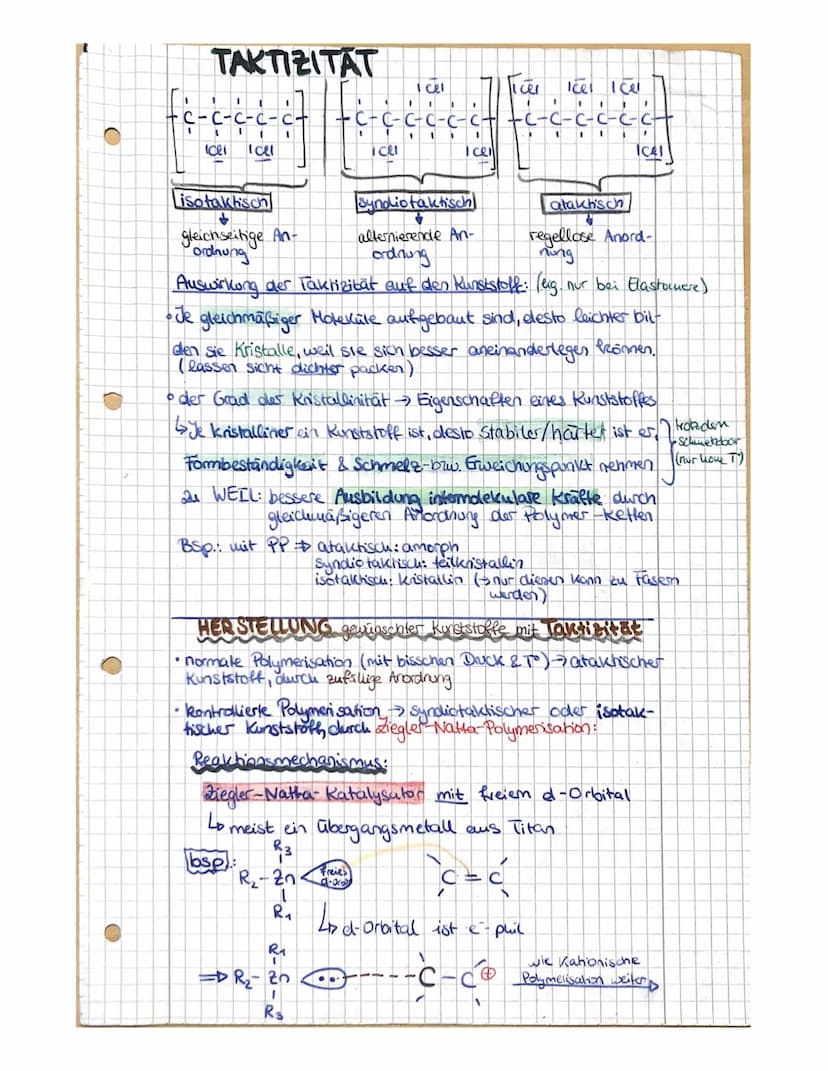 TAKTIZITÄT
|C̅l| |C̅l| |C̅l| |C̅l|
-C-C-C-C-C- -C-C-C-C-C-C- -C-C-C-C-C-C-
|Cl| |Cl| |Cl| |Cl| |Cl|
isotaktisch syndiotaktisch ataktisch
gleichseitige An-
ordnung
alternierende An-
ordnung
regellose Anord-
nung
Auswirkung der Taktizität auf den Kunststoff: (eig. nur bei Elastomere)
• Je gleichmäßiger Moleküle aufgebaut sind, desto leichter bil-
den sie Kristalle, weil sie sich besser aneinanderlegen können.
(lassen sicht dichter packen)
• der Grad der Kristallinität → Eigenschaften eines Kunststoffes
↳ Je kristalliner ein Kunststoff ist, desto stabiler/härter ist er,
Formbeständigkeit & Schmelz- bzw. Erweichungspunkt nehmen
trotzdem
schmelzbar
(nur hohe T°)
zu WEIL: bessere Ausbildung intermolekulare Kräfte durch
gleichmäßigeren Anordnung der Polymer-Ketten
Bsp.: mit PP ⇒ ataktisch: amorph
syndiotaktisch: teilkristallin
isotaktisch: kristallin (→ nur dieser kann zu Fasern
werden)
HERSTELLUNG gewünschter Kunststoffe mit Taktizität
• normale Polymerisation (mit bisschen Druck & T°) → ataktischer
Kunststoff, durch zufällige Anordnung
• kontrollierte Polymerisation → syndiotaktischer oder isotak-
tischer Kunststoff, durch Ziegler-Natta-Polymerisation:
Reaktionsmechanismus:
Ziegler-Natta-Katalysator mit freiem d-Orbital
↳ meist ein Übergangsmetall aus Titan
bsp.:
R₃
R₂-Zn freies d-Orbital C=C
R₁
↳ d-Orbital ist e⁻phil
R₁
⇒ R₂-Zn •• ----C-C⊕
R₃
wie Kationische
Polymerisation weiter